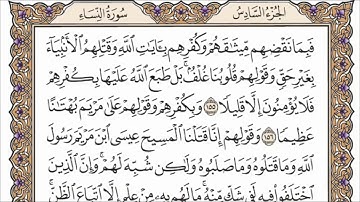 سُورَةُ النِّسَاءِ
الجُزْءُ السَّادِسُ
فَبِمَا نَقْضِهِم مِّيثَٰقَهُمْ وَكُفْرِهِم بِـَٔايَٰتِ ٱللَّهِ وَقَتْلِهِمُ ٱلْأَنۢبِيَآءَ
بِغَيْرِ حَقٍّ وَقَوْلِهِمْ قُلُوبُنَا غُلْفٌۢ ۚ بَلْ طَبَعَ ٱللَّهُ عَلَيْهَا بِكُفْرِهِمْ
فَلَا يُؤْمِنُونَ إِلَّا قَلِيلًا ١٥٥ وَبِكُفْرِهِمْ وَقَوْلِهِمْ عَلَىٰ مَرْيَمَ بُهْتَٰنًا
عَظِيمًا ١٥٦ وَقَوْلِهِمْ إِنَّا قَتَلْنَا ٱلْمَسِيحَ عِيسَى ٱبْنَ مَرْيَمَ رَسُولَ
ٱللَّهِ وَمَا قَتَلُوهُ وَمَا صَلَبُوهُ وَلَٰكِن شُبِّهَ لَهُمْ ۚ وَإِنَّ ٱلَّذِينَ
ٱخْتَلَفُوا۟ فِيهِ لَفِى شَكٍّ مِّنْهُ ۚ مَا لَهُم بِهِۦ مِنْ عِلْمٍ إِلَّا ٱتِّبَاعَ ٱلظَّنِّ ۚ